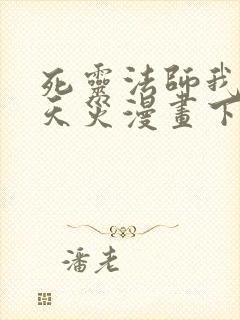 死靈法師我
天災漫畫下
潘老